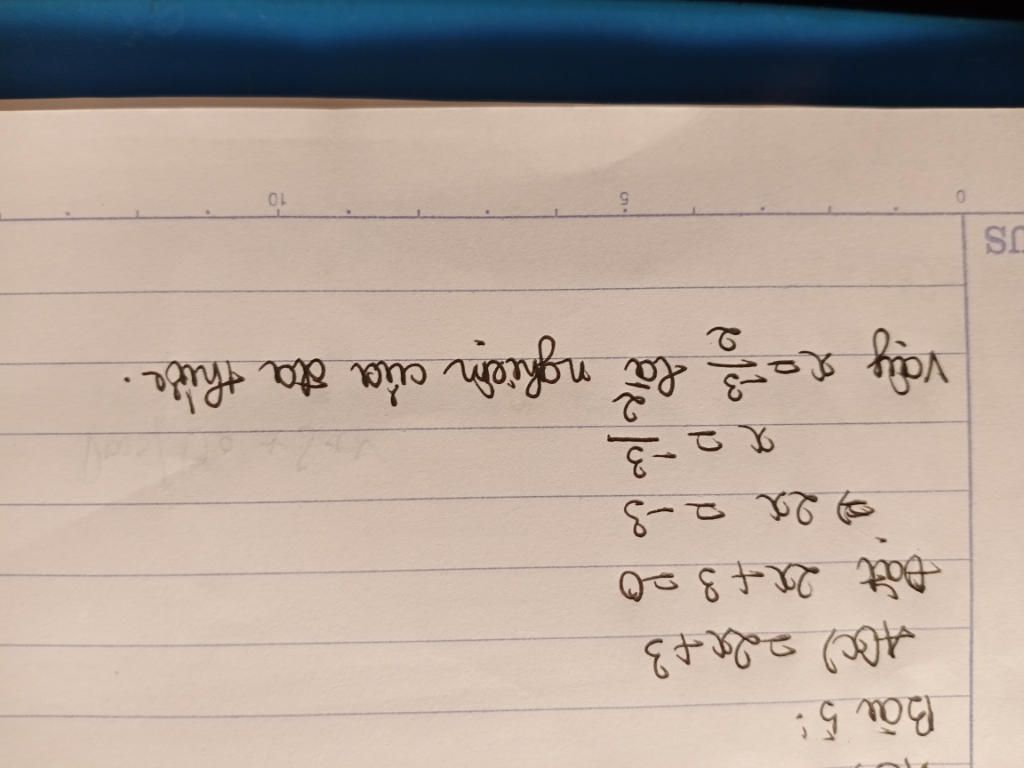 Bài 5:
A(x) = 2x + 3
Đặt 2x + 3 = 0
=> 2x = -3
x = -3/2
Vậy x = -3/2 là nghiệm của đa thức.
US
0 5 10